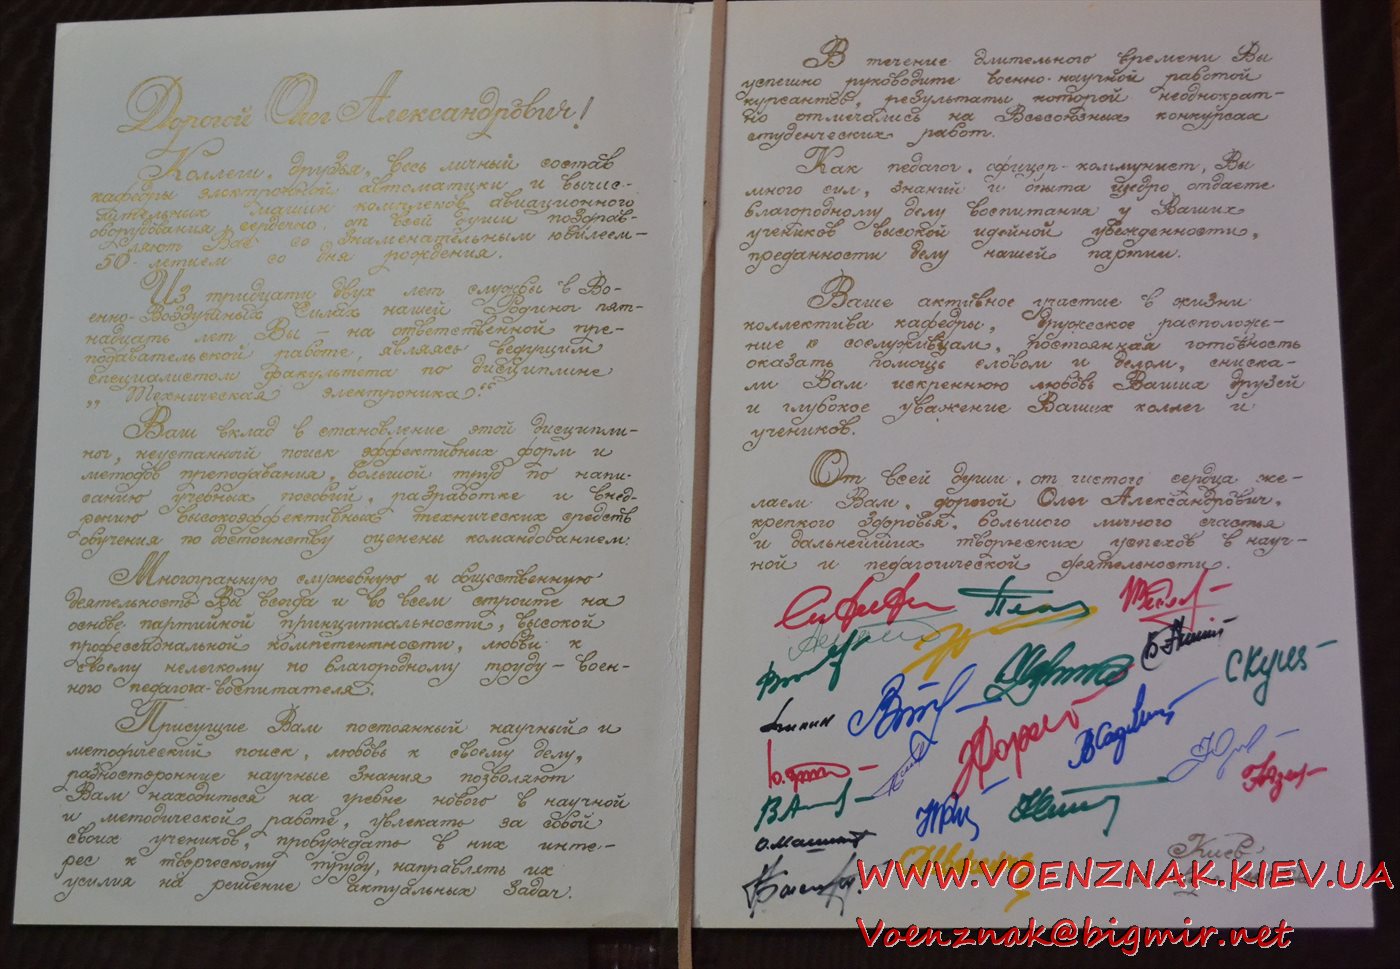 Дорогой Олег Александрович!
Коллеги, друзья, весь личный состав
кафедры электронной автоматики и вычис-
лительных машин комплексов авиационного
оборудования сердечно, от всей души поздрав-
ляют Вас со знаменательным юбилеем-
50-летием со дня рождения.
Из тридцати двух лет службы в Во-
енно-Воздушных Силах нашей Родины пят-
надцать лет Вы – на ответственной пре-
подавательской работе, являясь ведущим
специалистом факультета по дисциплине
„Техническая электроника".
Ваш вклад в становление этой дисципли-
ны, неустанный поиск эффективных форм и
методов преподавания, большой труд по напи-
санию учебных пособий, разработке и внед-
рению высокоэффективных технических средств
обучения по достоинству оценены командованием.
Многогранную служебную и общественную
деятельность Вы всегда и во всем строите на
основе партийной принципиальности, высокой
профессиональной компетентности, любви к
своему нелегкому но благородному труду – воен-
ного педагога-воспитателя.
Присущие Вам постоянный научный и
методический поиск, любовь к своему делу,
разносторонние научные знания позволяют
Вам находиться на гребне нового в научной
и методической работе, увлекать за собой
своих учеников, пробуждать в них инте-
рес к творческому труду, направлять их
усилия на решение актуальных задач.
В течение длительного времени Вы
успешно руководите военно-научной работой
курсантов, результаты которой неоднократ-
но отмечались на Всесоюзных конкурсах
студенческих работ.
Как педагог, офицер-коммунист, Вы
много сил, знаний и опыта щедро отдаете
благородному делу воспитания у Ваших
учеников высокой идейной убежденности,
преданности делу нашей партии.
Ваше активное участие в жизни
коллектива кафедры, дружеское расположе-
ние к сослуживцам, постоянная готовность
оказать помощь словом и делом, сниска-
ли Вам искреннюю любовь Ваших друзей
и глубокое уважение Ваших коллег и
учеников.
От всей души, от чистого сердца же-
лаем Вам, дорогой Олег Александрович,
крепкого здоровья, большого личного счастья
и дальнейших творческих успехов в науч-
ной и педагогической деятельности.
Киев
www.voenznak.kiev.ua
Voenznak@bigmir.net